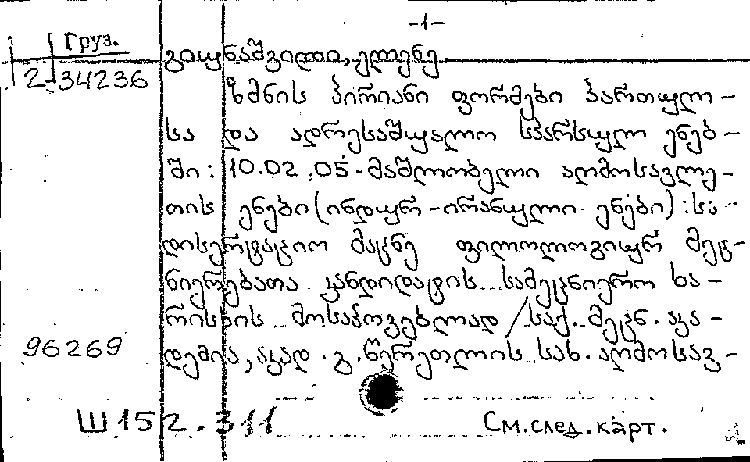 -1-
Груз.
2-34236
გიუნაშვილი, ელენე
ზმნის პირიანი ფორმები პართულ-
სა და ადრესაშუალო სპარსულ ენებ-
ში: 10.02.05-მაშლობელი აღმოსავლე-
თის ენები (ინდურ-ირანული ენები): სა-
დისერტაციო მაცნე ფილოლოგიურ მეც-
ნიერებათა კანდიდატის სამეცნიერო ხა-
რისხის მოსაპოვებლად / საქ. მეცნ. აკა-
96269
დემია, აკად. გ. წერეთლის სახ. აღმოსავ-
Ш152.311
См.след.карт.